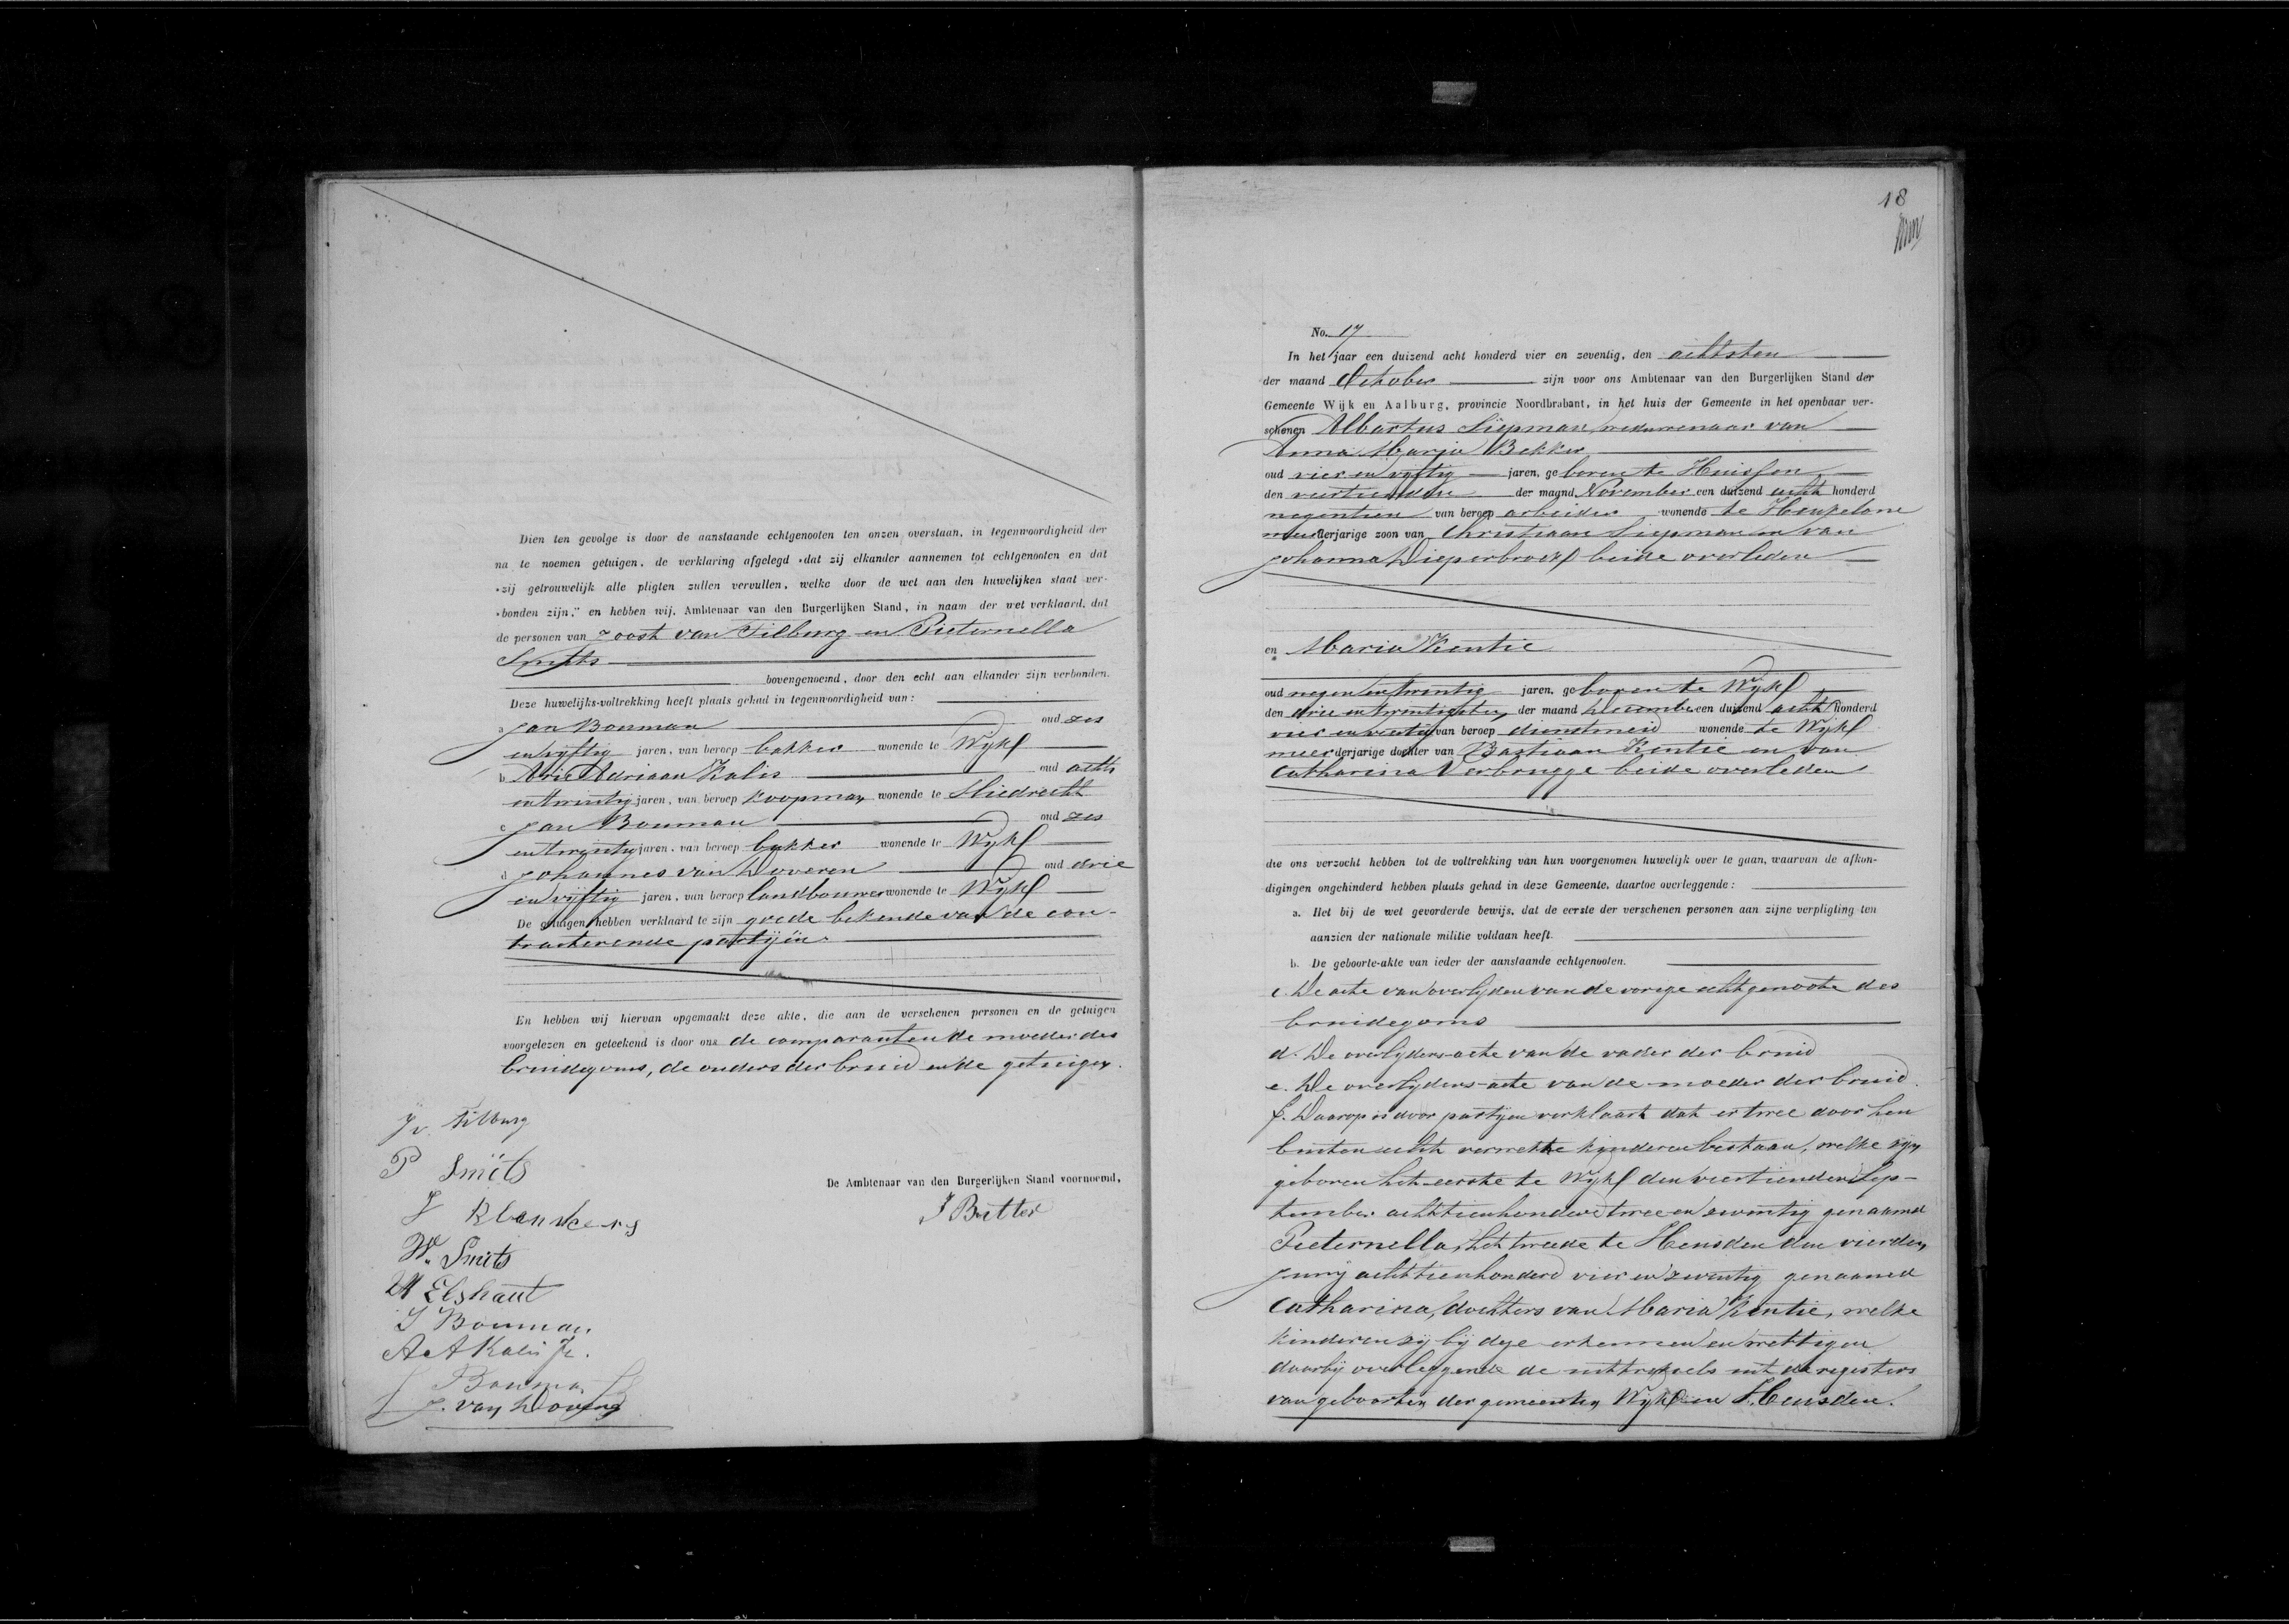 Dien ten gevolge is door de aanstaande echtgenooten ten onzen overstaan, in tegenwoordigheid der
na te noemen getuigen, de verklaring afgelegd »dat zij elkander aannemen tot echtgenooten en dat
»zij getrouwelijk alle pligten zullen vervullen, welke door de wet aan den huwelijken staat ver-
»bonden zijn," en hebben wij, Ambtenaar van den Burgerlijken Stand, in naam der wet verklaard, dat
de personen van Joost van Tilburg en Pieternella
Smits
bovengenoemd, door den echt aan elkander zijn verbonden.
Deze huwelijks-voltrekking heeft plaats gehad in tegenwoordigheid van:
a Jan Bouman oud zes
en vijftig jaren, van beroep bakker wonende te Wijk
b Arie Adriaan Kalis oud acht
en twintig jaren, van beroep koopman wonende te Sliedrecht
c Jan Bouman oud zes
en twintig jaren, van beroep bakker wonende te Wijk
d Johannes van Doveren oud drie
en vijftig jaren, van beroep landbouwer wonende te Wijk
De getuigen hebben verklaard te zijn goede bekende van de con-
tracterende partijën.
En hebben wij hiervan opgemaakt deze akte, die aan de verschenen personen en de getuigen
voorgelezen en geteekend is door ons de comparanten de moeder des
bruidegoms, de ouders der bruid en de getuigen.
J v Tilburg
P Smits
De Ambtenaar van den Burgerlijken Stand voornoemd,
J Butter
W. Smits
M Elshout
J Bouman
A A Kalis Jr.
J Bouman
J. van Doveren
18
No. 17
In het jaar een duizend acht honderd vier en zeventig, den achtsten
der maand October zijn voor ons Ambtenaar van den Burgerlijken Stand der
Gemeente Wijk en Aalburg, provincie Noordbrabant, in het huis der Gemeente in het openbaar ver-
schenen Albartus Siepman, weduwenaar van
Anna Maria Bekker
oud vier en vijftig jaren, geboren te Huissen
den veertienden der maand November een duizend acht honderd
negentien van beroep arbeider wonende te Heukelom
meerderjarige zoon van Christiaan Siepman en van
Johanna Dieperbroek beide overleden
en Maria Kentie
oud negen en twintig jaren, geboren te Wijk
den drie en twintigsten der maand December een duizend acht honderd
vier en veertig van beroep dienstmeid wonende te Wijk
meerderjarige dochter van Bastiaan Kentie en van
Catharina Verbrugge beide overleden
die ons verzocht hebben tot de voltrekking van hun voorgenomen huwelijk over te gaan, waarvan de afkon-
digingen ongehinderd hebben plaats gehad in deze Gemeente, daartoe overleggende:
a. Het bij de wet gevorderde bewijs, dat de eerste der verschenen personen aan zijne verpligting ten
aanzien der nationale militie voldaan heeft.
b. De geboorte-akte van ieder der aanstaande echtgenooten.
c. De acte van overlijden van de vorige echtgenoote des
bruidegoms
d. De overlijdens-acte van de vader der bruid
e. De overlijdens-acte van de moeder der bruid.
f. Daarop is door partijen verklaart dat er twee door hen
buiten echt verwekte kinderen bestaan, welke zijn
geboren het eerste te Wijk den veertienden Sep-
tember achttienhonderd twee en zeventig genaamd
Pieternella, het tweede te Heusden den vierden
Junij achttienhonderd vier en zeventig genaamd
Catharina, dochters van Maria Kentie, welke
kinderen zij bij deze erkennen en wettigen
daarbij overleggende de uittreksels uit de registers
van geboorten der gemeenten Wijk en Heusden.